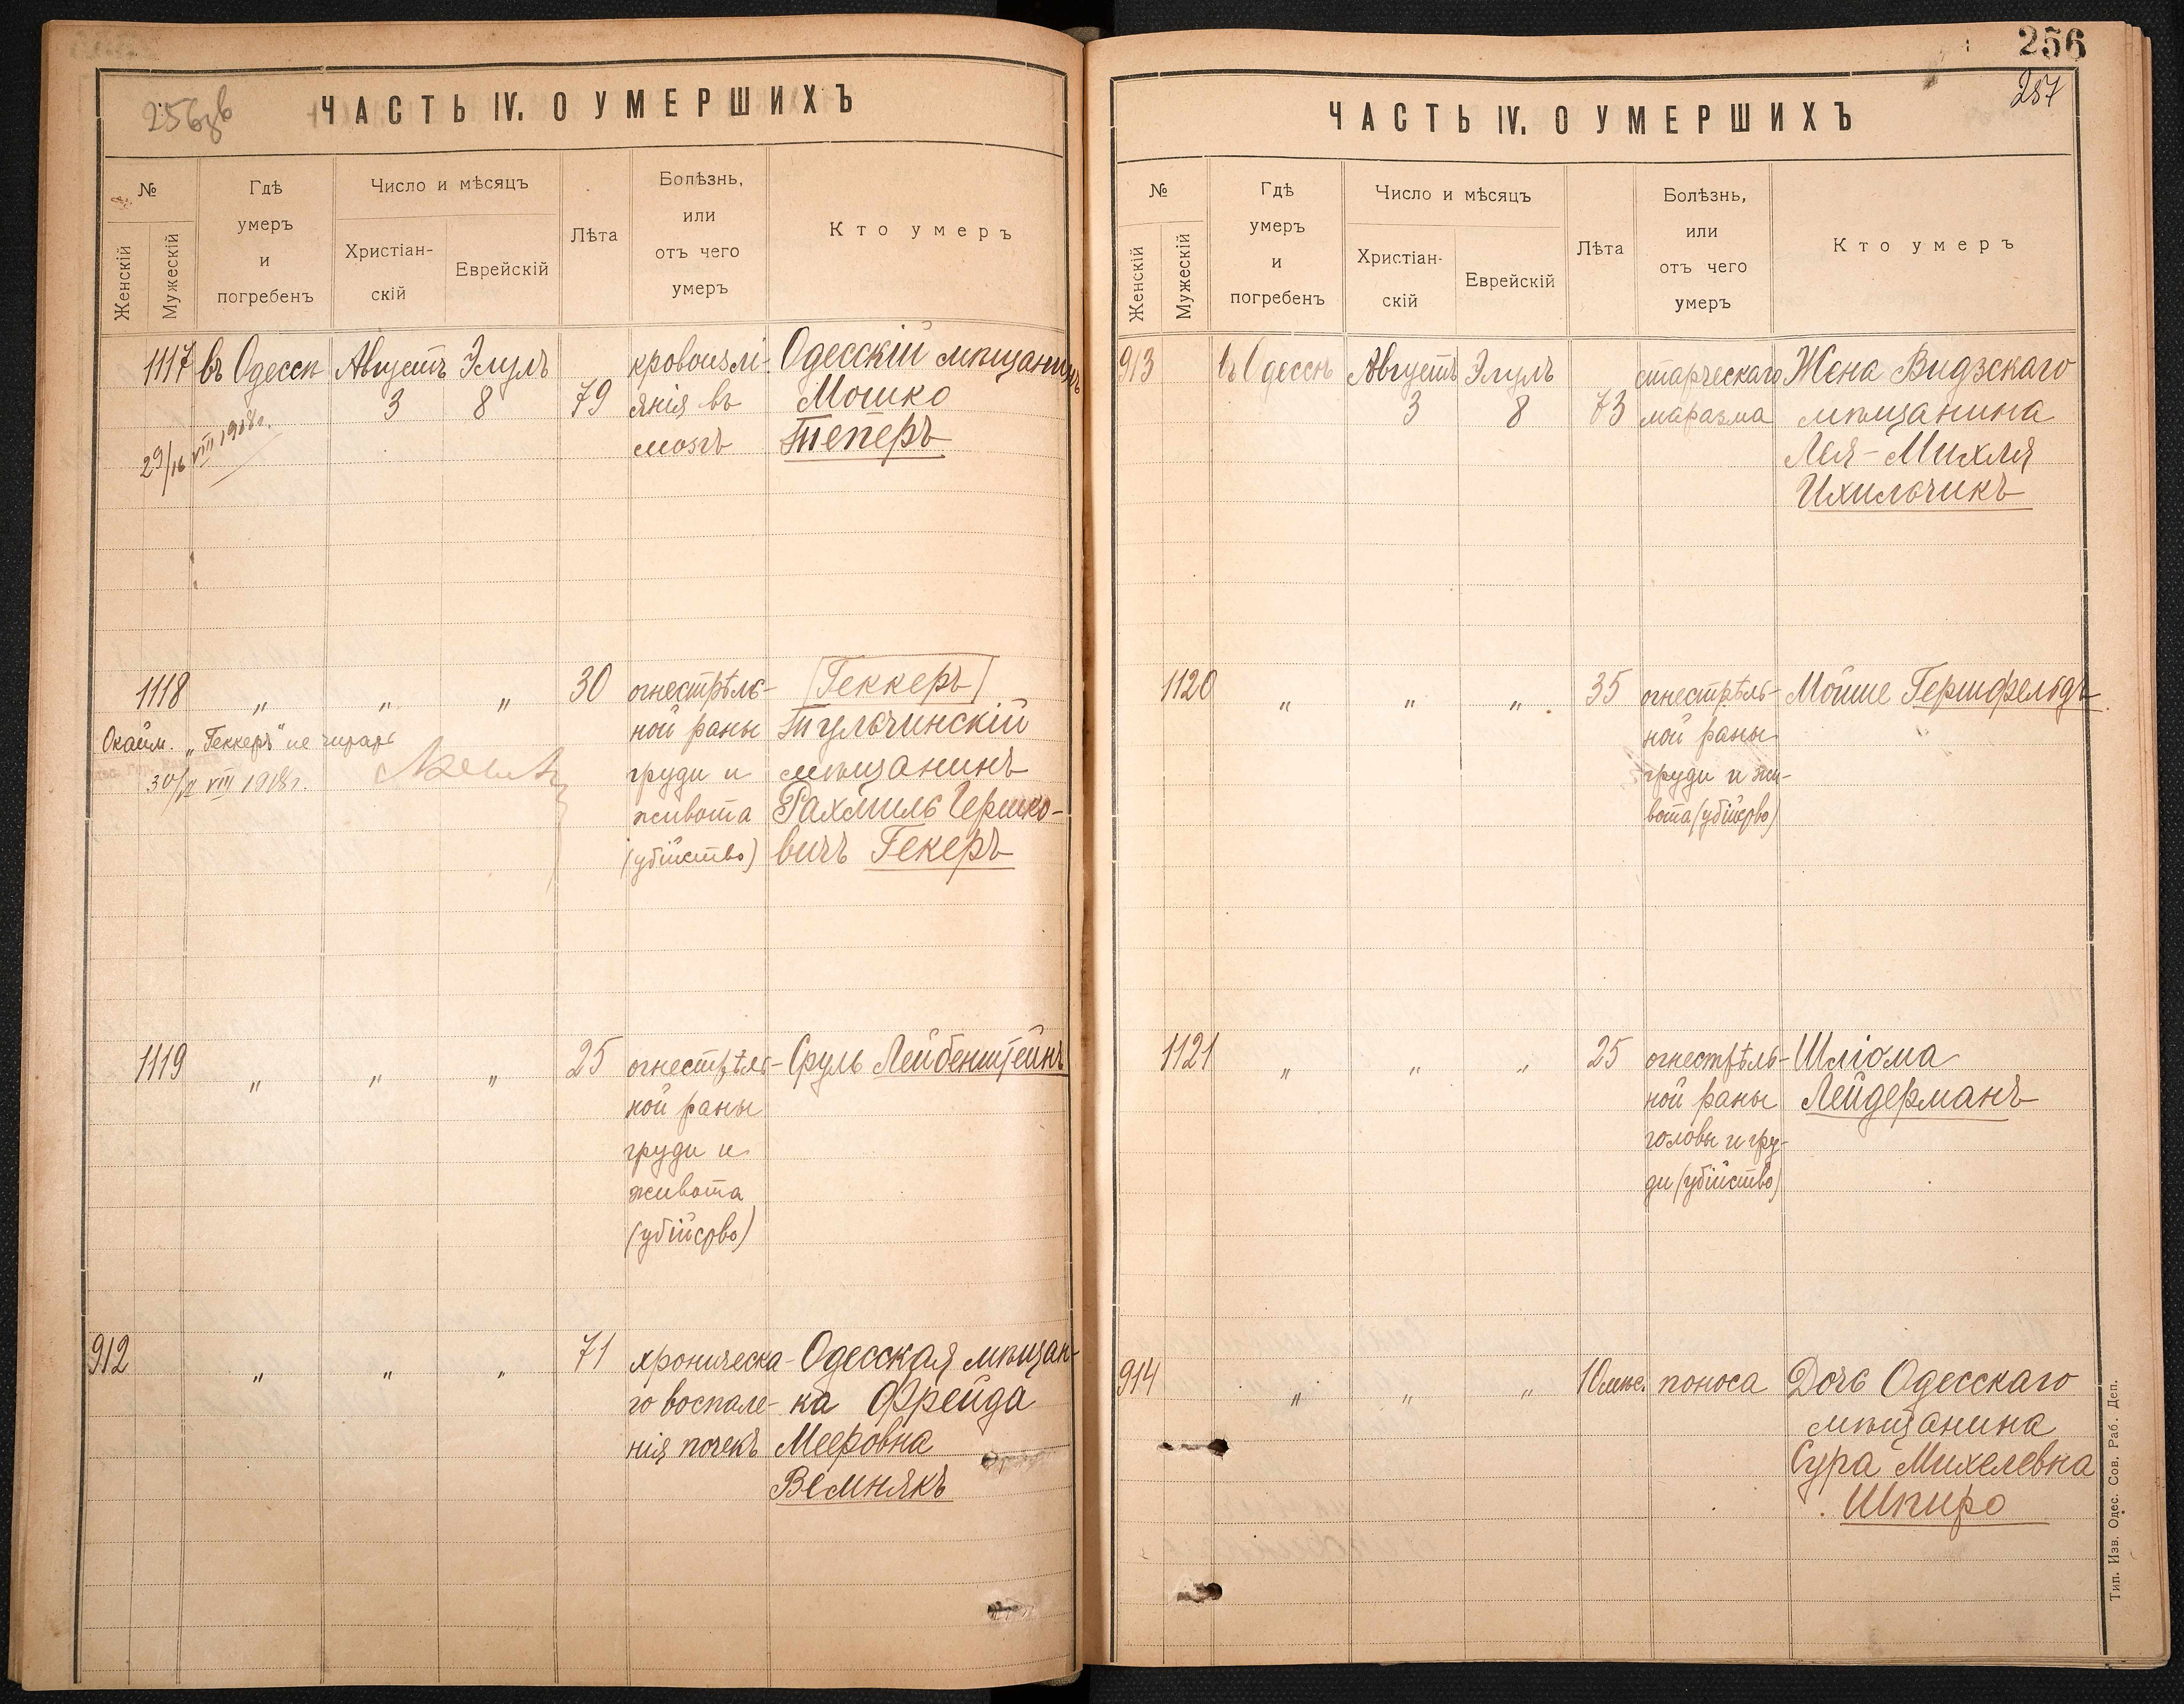 256 зв
ЧАСТЬ IV. О УМЕРШИХЪ
№
Женскій
Мужескій
Гдѣ
умеръ
и
погребенъ
Число и мѣсяцъ
Христіан-
скій
Еврейскій
Лѣта
Болѣзнь,
или
отъ чего
умеръ
Кто умеръ
1117 въ Одессѣ Августъ Элулъ кровоизлі- Одесскій мѣщанинъ
3 8 79 янія въ Мошко
мозгъ Теперъ
29/16 VIII 1918г.
1118 „ „ „ 30 огнестрѣль- [Геккеръ]
ной раны Тульчинскій
груди и мѣщанинъ
живота Рахмиль Гершко-
(убійство) вичъ Гекеръ
Окайм. „Геккеръ" не читать
30/ VIII 1918г.
1119 „ „ „ 25 огнестрѣль- Сруль Лейбенштейнъ
ной раны
груди и
живота
(убійство)
912 „ „ „ 71 хроническа- Одесская мѣщан-
го воспале- ка Фрейда
нія почекъ Мееровна
Вемнякъ
256
257
ЧАСТЬ IV. О УМЕРШИХЪ
№
Женскій
Мужескій
Гдѣ
умеръ
и
погребенъ
Число и мѣсяцъ
Христіан-
скій
Еврейскій
Лѣта
Болѣзнь,
или
отъ чего
умеръ
Кто умеръ
913 въ Одессѣ Августъ Элулъ старческаго Жена Видзскаго
3 8 73 маразма мѣщанина
Лея-Михля
Ихильчикъ
1120 „ „ „ 35 огнестрѣль- Мойше Гершфельдъ
ной раны
груди и жи-
вота (убійство)
1121 „ „ „ 25 огнестрѣль- Шліома
ной раны Лейдерманъ
головы и гру-
ди (убійство)
914 „ „ „ 10 мѣс. поноса Дочь Одесскаго
мѣщанина
Сура Михелевна
Шпиро
Тип. Изв. Одес. Сов. Раб. Деп.